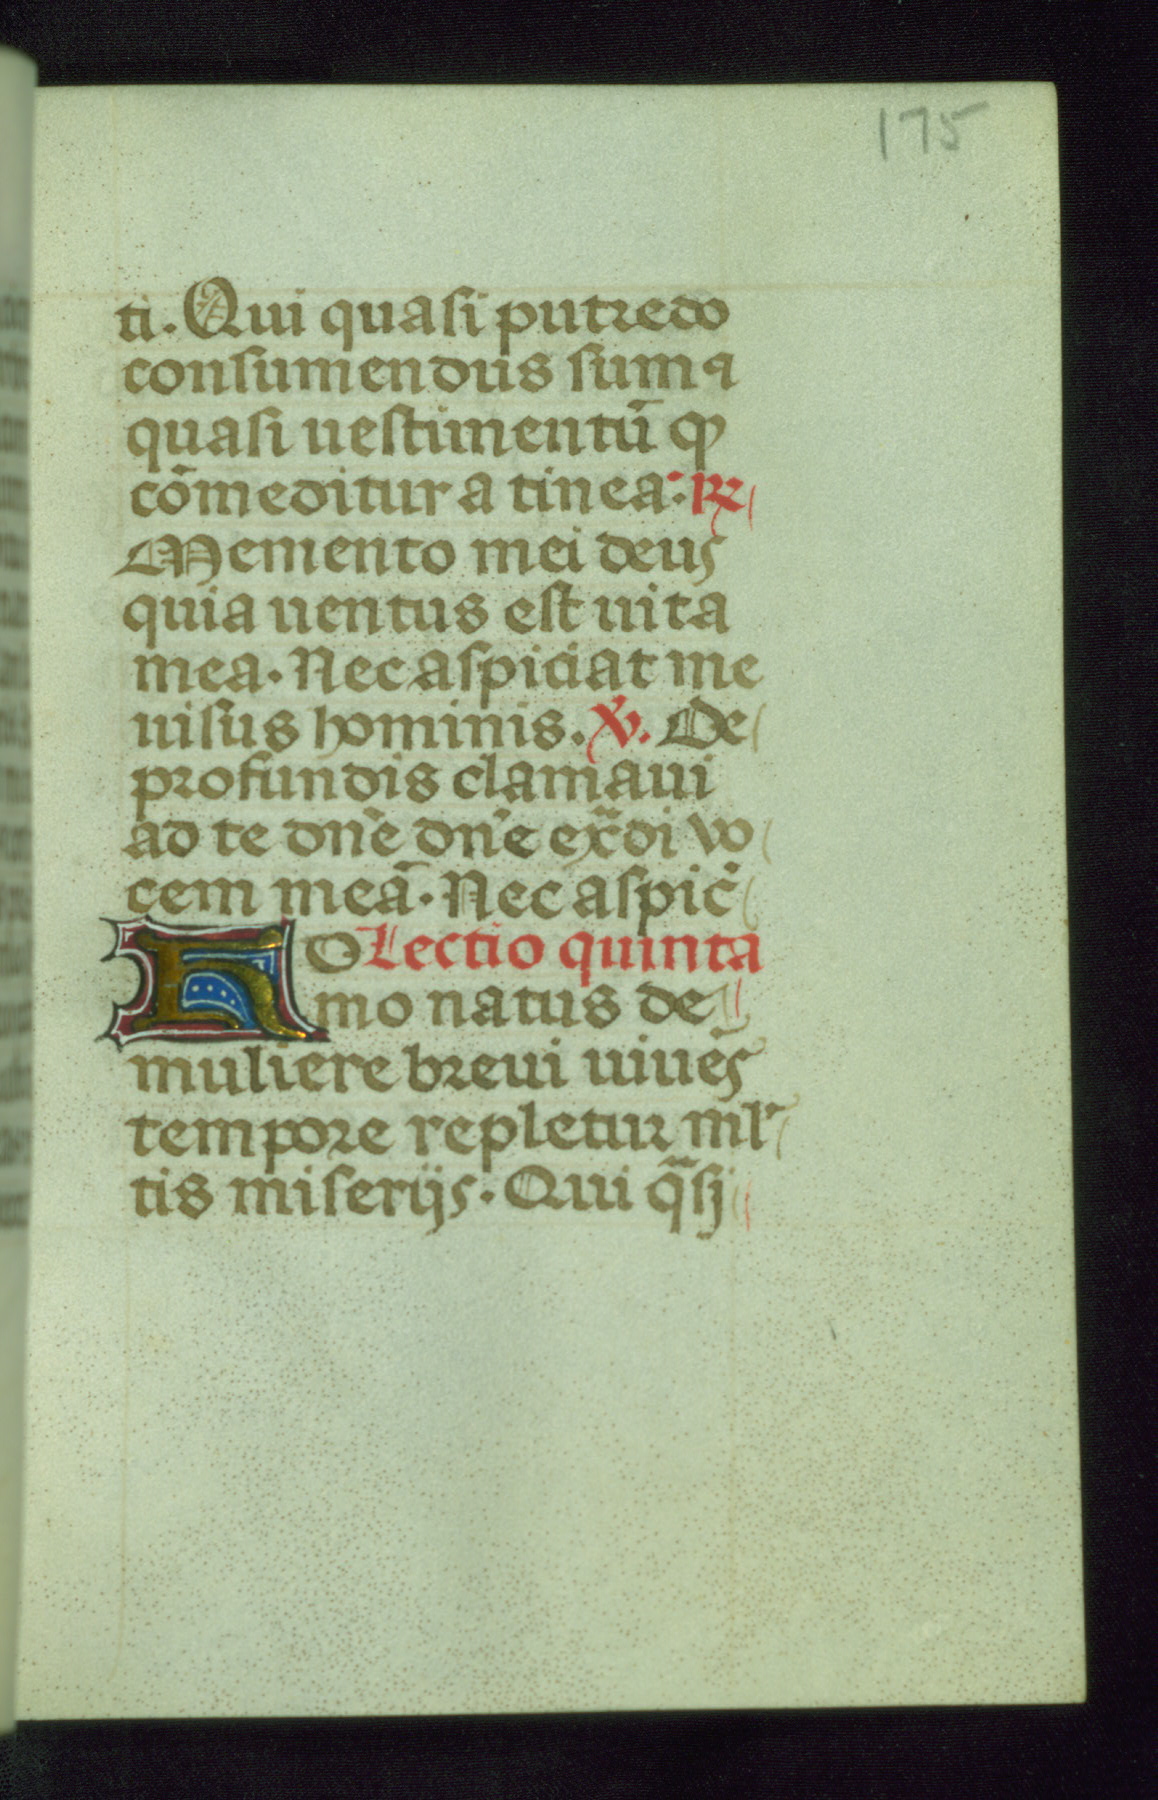 175
ti. Qui quasi putredo
consumendus sum ⁊
quasi uestimentū qɔ
cōmeditur a tinea: ℟
Memento mei deus
quia uentus est uita
mea. Nec aspiciat me
uisus hominis. ℣. De
profundis clamaui
ad te dn̄e dn̄e ex̄di vo
cem meā. Nec aspic̄
HO Lectio quinta
mo natus de
muliere breui uiues
tempore repletur ml̄
tis miserijs. Qui q̄sj